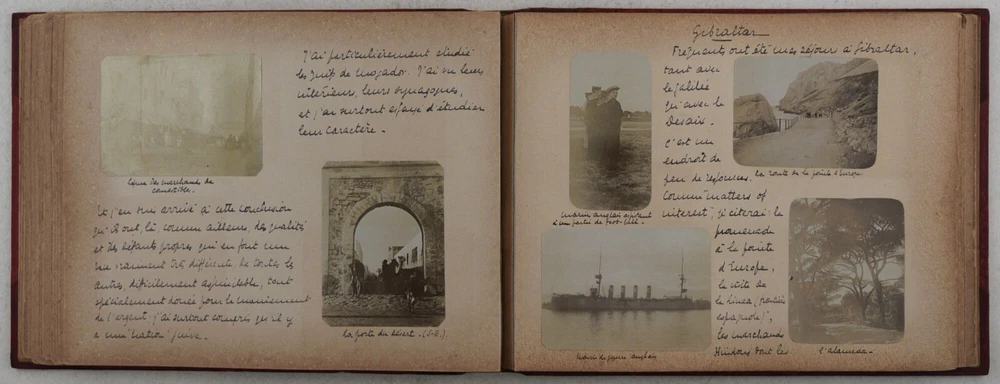 J'ai particulièrement étudié
les Juifs de Mogador. J'ai vu leurs
intérieurs, leurs synagogues,
et j'ai surtout essayé d'étudier
leur caractère -
des marchands de
comestible.
Et j'en suis arrivé à cette conclusion
qu'ils ont, là comme ailleurs, des qualités
et des défauts propres qui en font une
vraiment très différente de toutes les
autres, difficilement assimilable, tout
spécialement douée pour le maniement
de l'argent. J'ai surtout compris qu'il y
a une "nation" juive.
La porte du désert - (S-E.)
Gibraltar
Fréquents ont été mes séjours à Gibraltar,
tant avec
le Galilée
qu'avec le
Desaix -
C'est un
endroit de
peu de ressources.
la route de la pointe d'Europe
marin anglais assistant
à une partie de foot-ball -
Comme "matters of
interest", je citerai la
promenade
à la pointe
d'Europe,
la visite de
la Linea (
espagnole),
les marchands
Hindous dont les
Navire de guerre anglais
L'alameda -